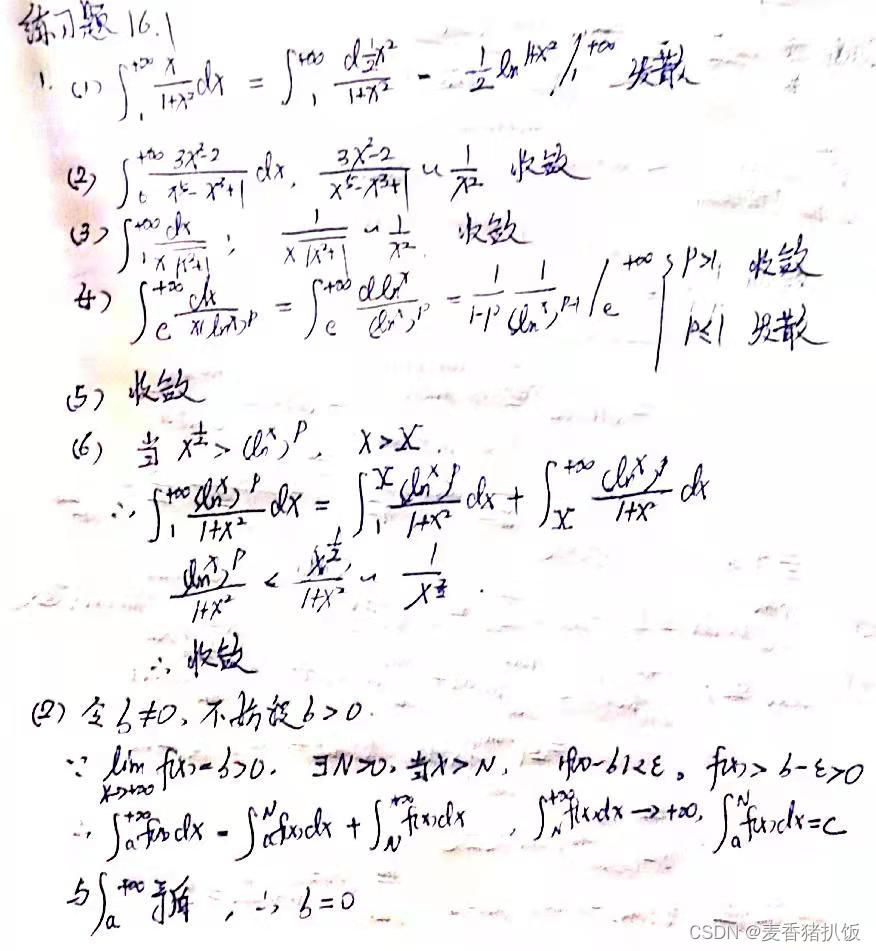 练习题 16.1
1. (1) ∫₁^{+∞} x/(1+x²) dx = ∫₁^{+∞} d½x²/(1+x²) = ½ ln^{1+x²} |₁^{+∞} 发散
(2) ∫₀^{+∞} (3x²-2)/(x⁵-x³+1) dx, (3x²-2)/(x⁵-x³+1) ~ 1/x² 收敛
(3) ∫₁^{+∞} dx/(x√(x²+1)); 1/(x√(x²+1)) ~ 1/x² 收敛
4) ∫_e^{+∞} dx/(x(ln^x)^p) = ∫_e^{+∞} d ln^x/(ln^x)^p = 1/(1-p) 1/(ln^x)^{p-1} |_e^{+∞} { p>1, 收敛
p≤1 发散
(5) 收敛
(6) 当 x^{1/2} > (ln^x)^p, x>X.
∴ ∫₁^{+∞} (ln^x)^p/(1+x²) dx = ∫₁^X (ln^x)^p/(1+x²) dx + ∫_X^{+∞} (ln^x)^p/(1+x²) dx
(ln^x)^p/(1+x²) < x^{1/2}/(1+x²) ~ 1/x^{3/2}.
∴ 收敛
(2) 令 b≠0, 不妨设 b>0.
∵ lim_{x→+∞} f(x)=b>0. ∃N>0, 当x>N, |f(x)-b|<ε。f(x)>b-ε>0
∴ ∫_a^{+∞} f(x)dx = ∫_a^N f(x)dx + ∫_N^{+∞} f(x)dx, ∫_N^{+∞} f(x)dx→+∞, ∫_a^N f(x)dx=C
与∫_a^{+∞} 矛盾, ∴ b=0
CSDN @麦香猪扒饭